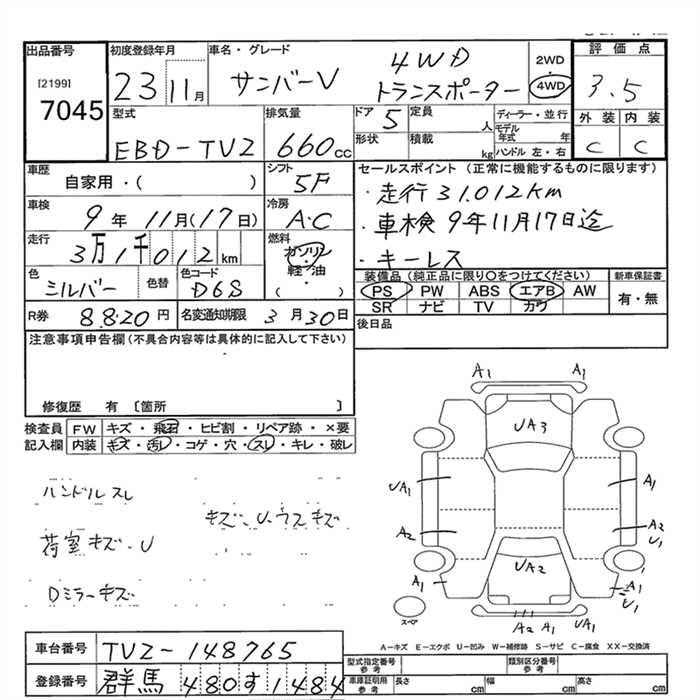 出品番号
[2199]
7045
初度登録年月
23 11月
車名・グレード
サンバーV 4WD
トランスポーター
2WD
・
4WD
評価点
3.5
外装 内装
C C
型式
EBD-TV2
排気量
660cc
ドア
5
形状
定員
人
積載
kg
ディーラー・並行
モデル年式 年
ハンドル 左・右
車歴
自家用・( )
シフト
5F
車検
9年11月(17日)
冷房
A・C
走行
3万1千012km
燃料
ガソリン
・
軽油
( )
色
シルバー
色替
色コード
D6S
R券
8820円
名変通知期限
3月30日
セールスポイント(正常に機能するものに限ります)
・走行31.012km
・車検 9年11月17日迄
・キーレス
装備品(純正品に限り○をつけてください)
PS PW ABS エアB AW
SR ナビ TV カワ
新車保証書
有・無
後日品
注意事項申告欄(不具合内容等は具体的に記入して下さい)
修復歴 有 〔箇所 〕
検査員
記入欄
FW キズ・飛石・ヒビ割・リペア跡・×要
内装 キズ・汚レ・コゲ・穴・スレ・キレ・破レ
ハンドルスレ
キズ・U・ウスキズ
荷室キズ・U
Dミラーキズ
A1 A1
UA3
UA1 A1
A2 A2
U1
UA2
A1 A1
U1
スペア
A2 A1 UA1
A-キズ E-エクボ U-凹み W-補修跡 S-サビ C-腐食 XX-交換済
車台番号
TV2-148765
登録番号
群馬 480す1484
型式指定番号
参考
類別区分番号
参考
車庫証明用
参考
長さ cm
幅 cm
高さ cm